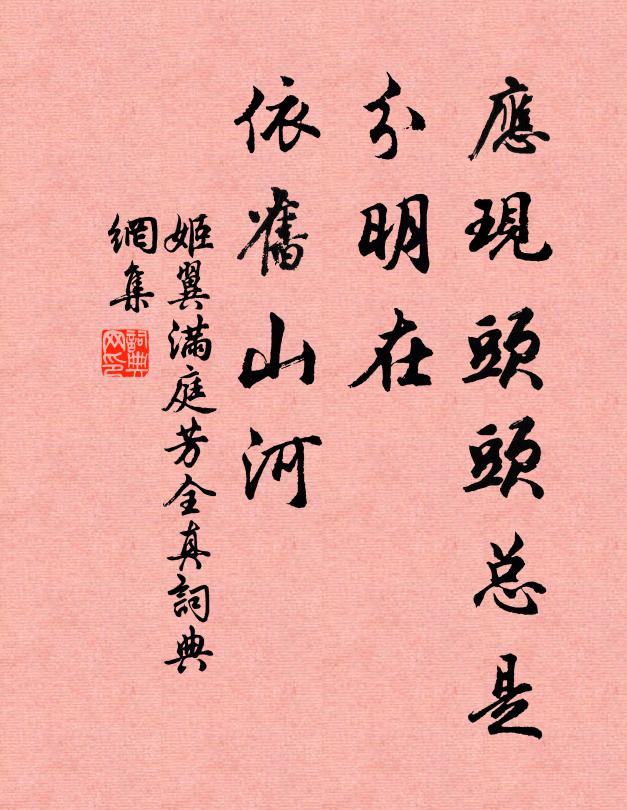 應現頭頭总是
分明在
依舊山河
姬翼滿庭芳全真詞典
網集
詞典網印